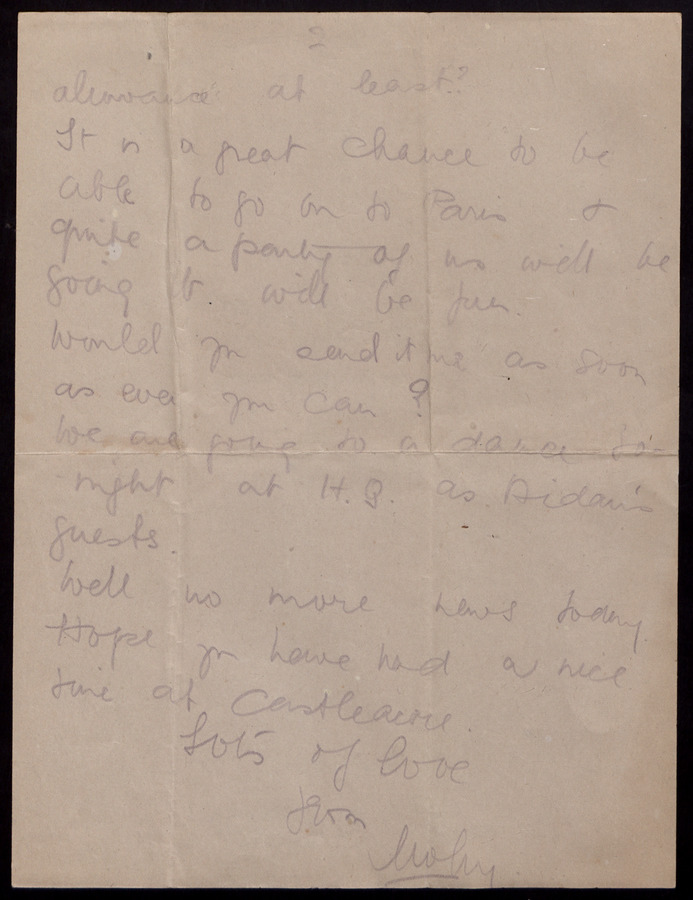 2
allowance at least?
It is a great chance to be
able to go on to Paris &
quite a party of us will be
going It will be fun.
Would you send it me as soon
as ever you can?
We are going to a dance to-
night at H.Q. as Aidan's
guests.
Well no more news today.
Hope you have had a nice
time at Castleacre.
Lots of love
from